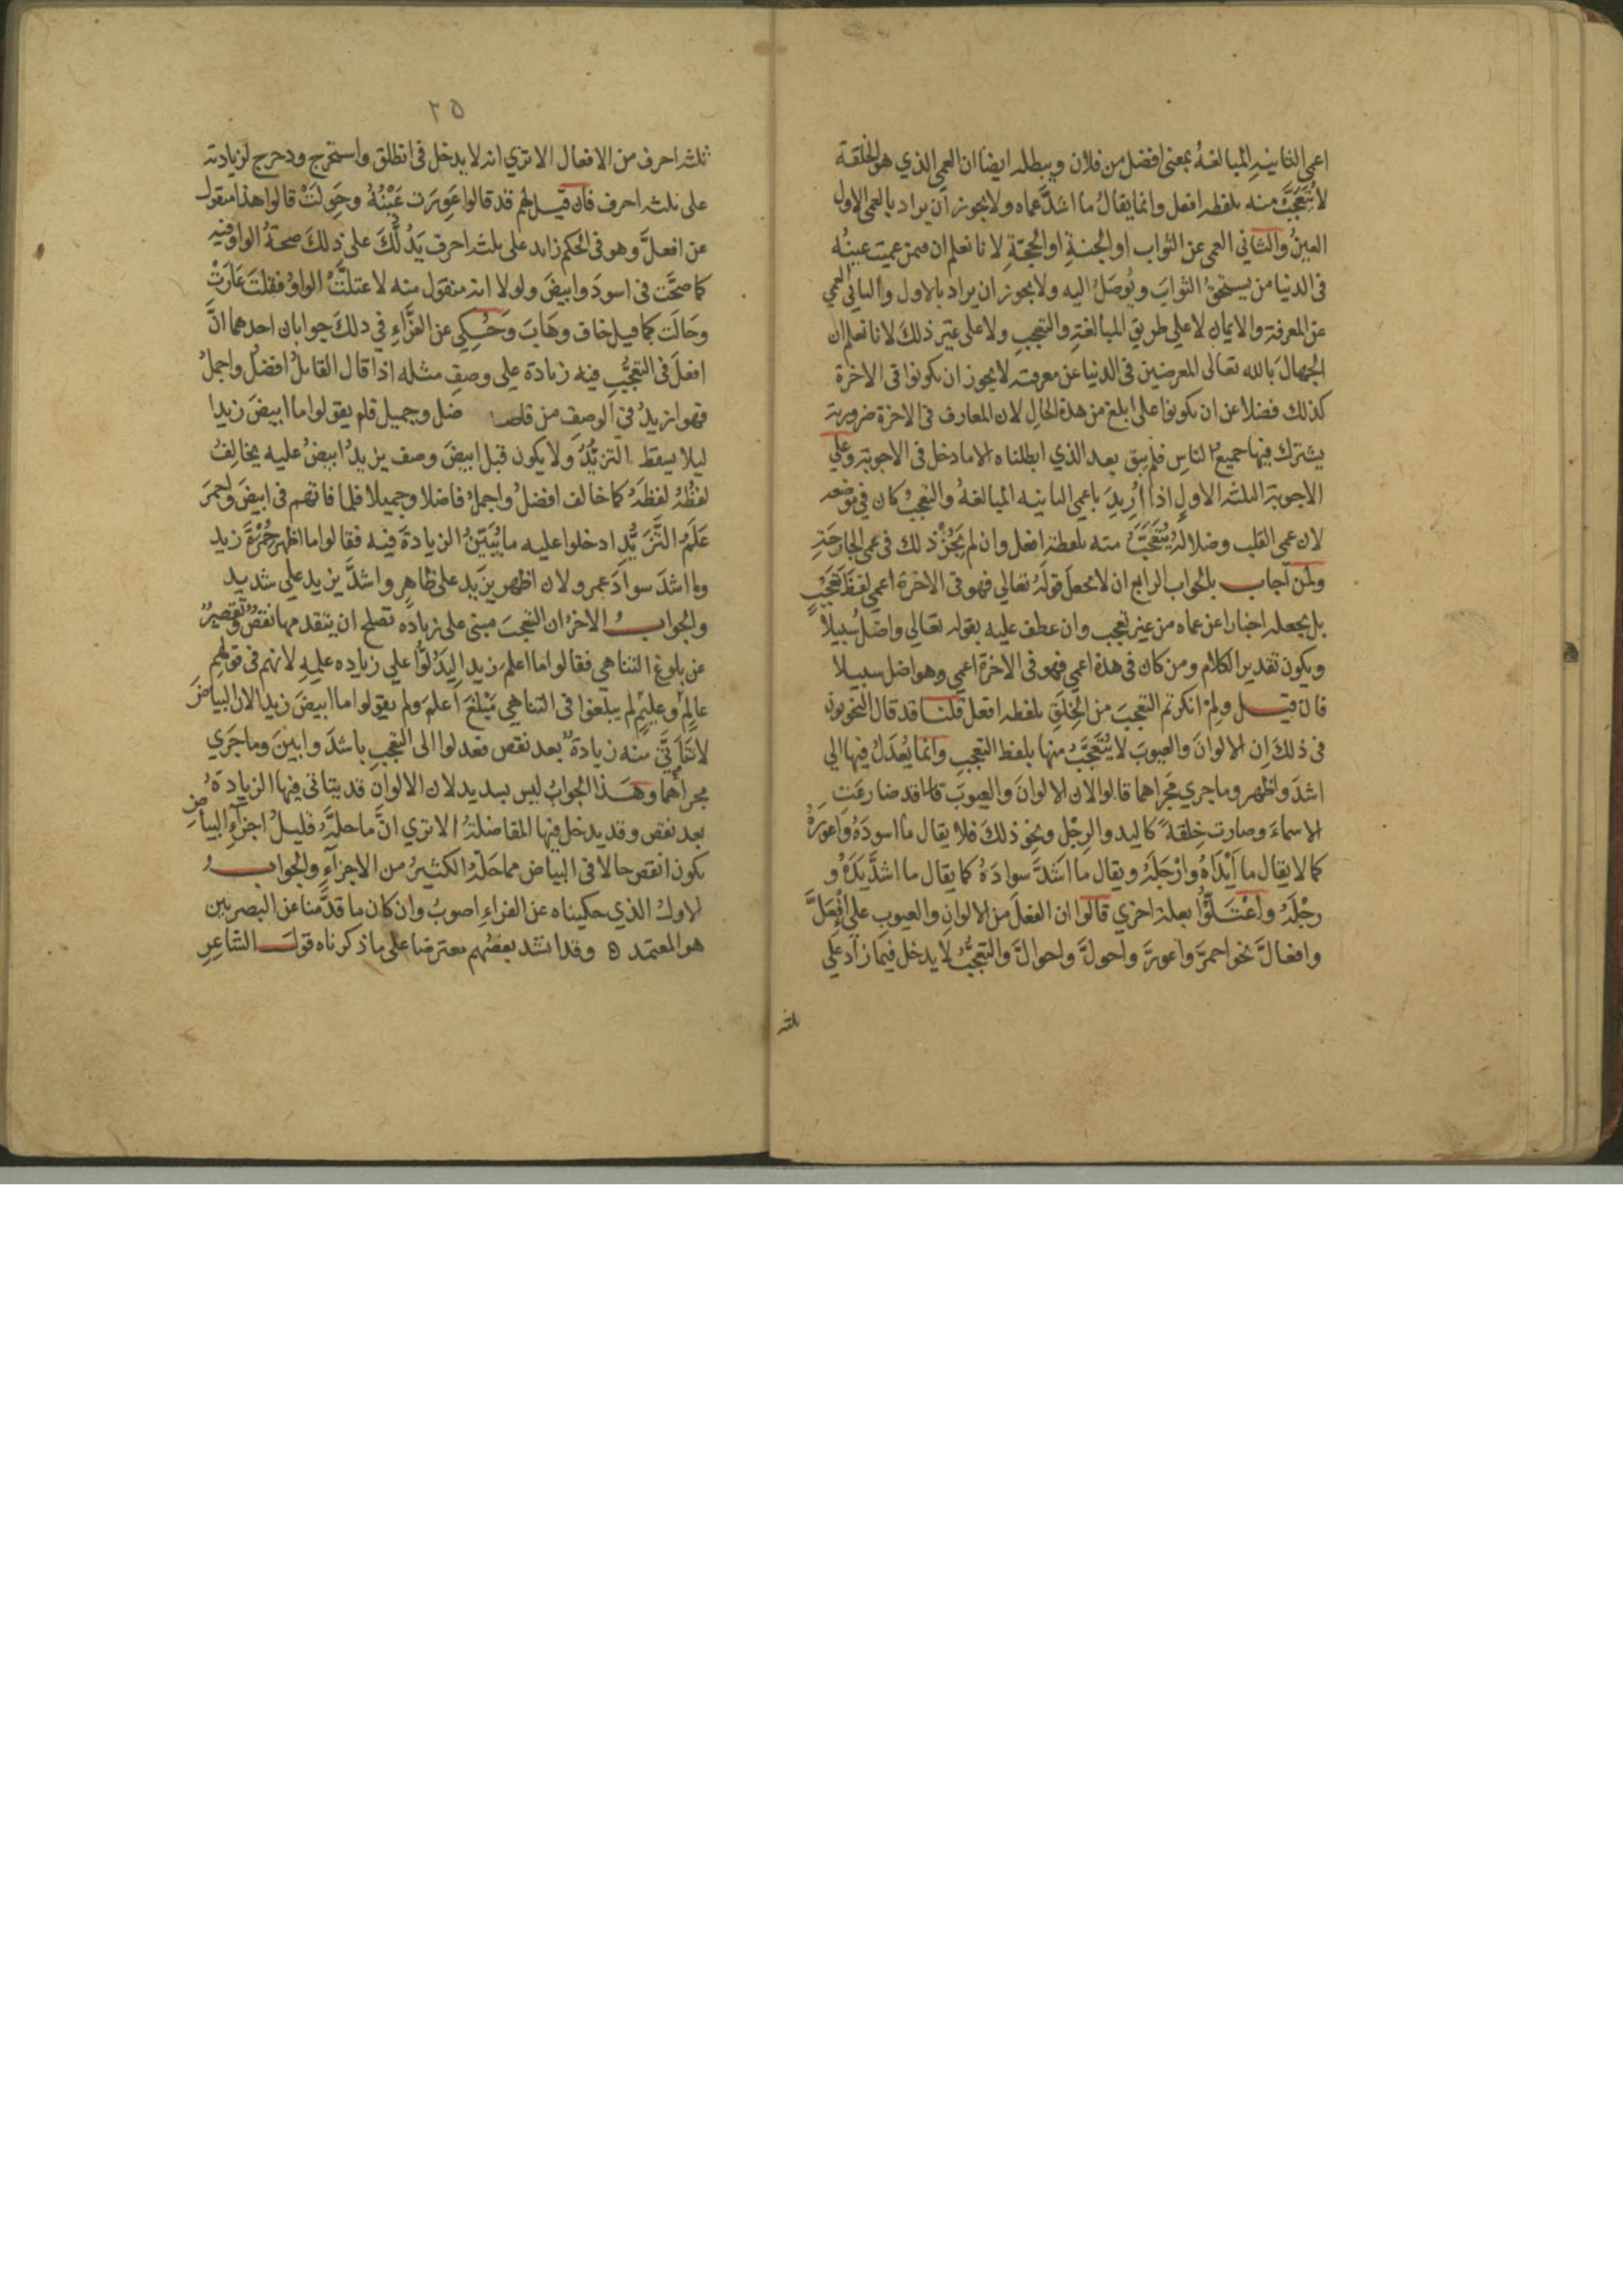 اعمى الثانية المبالغةُ بمعنى افضل من فلان ويبطله ايضا ان العمى الذي هو الخلقة
لا يُتَعَجَّبُ منه بلفظه افعل وانما يقالُ ما اشدَّ عماه ولا يجوز ان يراد بالعمى الاول
العينُ والثاني العمى عن الثواب او الجنةِ او الحجّةِ لانا نعلم ان فيمن عميت عينُه
فى الدنيا من يستحقُ الثوابَ ويُوصَلُ اليه ولا يجوز ان يراد بالاول والثاني العمى
عن المعرفة والايمانِ لا علي طريقِ المبالغةِ والتعجبِ ولا على غير ذلكَ لانا نعلم ان
الجهالَ بالله تعالى المعرضين فى الدنيا عن معرفته لا يجوز ان يكونوا فى الاخرة
كذلك فضلا عن ان يكونوا على ابلغ من هذة الحالِ لان المعارف فى الاخرة ضرورية
يشترك فيها جميعُ الناسِ فلم يبق بعد الذي ابطلناه الا ما دخل فى الاجوبة وعلي
الاجوبة الثلثة الاولِ اذا اُرِيدَ باعمى الثانيه المبالغةُ والتعجبُ كان فى موضعه
لان عمى القلب وضلالَهُ يُتَعَجَّبُ منه بلفظة افعل وان لم يَجُزْ ذلك فى عمى الجارحَةِ
ولمن اجاب بالجواب الرابع ان لا يجعلَ قولَهُ تعالي فهو فى الاخرة اعمى لفظَ تَعَجُّبٍ
بل يجعله اخبارا عن عماه من غير تعجب وان عطف عليه بقوله تعالي واضل سبيلا
ويكون تقدير الكلام ومن كان فى هذة اعمى فهو فى الاخرة اعمى وهو اضل سبيلا
فان قيل ولِمَ انكرتم التعجبَ من الخِلَقِ بلفظه افعل قلنا قد قال النحويون
فى ذلك اِن الالوانَ والعيوبَ لا يُتَعَجَّبُ منها بلفظ التعجبِ وانما يُعدَلُ فيها الي
اشدَ واظهر وما جري مَجراهما قالوا لان الالوانَ والعيوبَ قد ضارعَتِ
الاسماءَ وصارت خِلقةً كاليد والرِجْلِ ونحو ذلكَ فلا يقال ما اسودَهُ واعورَهُ
كما لا يقال ما اَيْدَاهُ وارْجَلَهُ ويقال ما اَشَدَّ سوادَهُ كما يقال ما اشدَّ يَدَهُ و
رِجْلَهُ واعْتَلُّوا بعلة اخري قالوا ان الفعلَ من الالوانِ والعيوبِ علي اِفْعَلَّ
وافعالَّ نحو احمرَّ واعورَّ واحولَّ واحوالَّ والتعجبُ لا يدخل فيما زاد علي
ثلثه
٢٥
ثلثه احرف من الافعال الا تري انه لا يدخل فى انطلق واستخرج ودحرج لزيادته
على ثلثه احرف فان قيل لهم قد قالوا عَوِرَت عَيْنُهُ وحَوِلَتْ قالوا هذا منقول
عن افعلَّ وهو فى الحكم زايد على ثلثه احرف يَدُلُّكَ على ذلكَ صحةُ الواو فيه
كما صحَّت فى اسودَ وابيضَ ولولا انه منقول منه لاعتلَّتْ الواوُ فقلتَ عَارَتْ
وحَالَت كما قيل خاف وهَابَ وحُكِي عن الفرَّاءِ في ذلكَ جوابان احدهما انَّ
افعلَ فى التعجُّبِ فيه زيادة على وصفٍ مثله اذا قال القائلُ افضلُ واجملُ
فهو ازيدُ في الوصفِ من فاضل وجميل فلم يقولوا ما ابيضَ زيدا
ليلا يسقط التزيُّدُ ولا يكون قبل ابيضَ وصف يزيدُ ابيضُ عليه يخالفُ
لفظُهُ لفظَهُ كما خالف افضلُ واجملُ فاضلا وجميلا فلما فاتهم فى ابيضَ واحمرَ
عَلَمُ التَّزَيُّدِ ادخلوا عليه ما يُبَيّنُ الزيادةَ فيه فقالوا ما اظهر حُمْرَةَ زيد
وما اشدَ سوادَ عمرو لان اظهر يزيد على ظاهرٍ واشدَّ يزيد علي شديد
والجوابُ الاخرُ ان التعجبَ مبنى على زيادَه تصلح ان يتقدمها نقصٌ وتقصيرٌ
عن بلوغ التناهى فقالوا ما اعلم زيدا ليَدُلُّوا علي زياده عليه لانهم فى قولِهِم
عالِمٌ وعليمٌ لم يبلغوا فى التناهي مَبْلَغَ اَعلمَ ولم يقولوا ما ابيضَ زيدا لان البياضَ
لا تتأتَّى منه زيادة بعد نقص فعدلوا الى التعجبِ باشدَ وابينَ وما جَرَي
مجراهُما وهَذا الجوابُ ليس بسديد لان الالوانَ قد يتاتى فيها الزيادَةُ
بعد نقص وقد يدخل فيها المفاضلةُ الا تري انَّ ما حلَّهُ قليلُ اجزآءِ البياضِ
يكون انقص حالا فى البياض مما حَلَّهُ الكثيرُ من الاجزآءِ والجوابُ
الاولُ الذي حكيناه عن الفراءِ اصوبُ وان كان ما قدَّمنا عن البصريين
هو المعتمد ٥ وقد انشد بعضُهم معترضا على ما ذكرناه قولَ الشاعِرِ